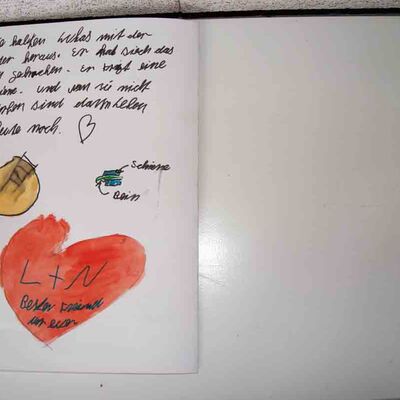 ie halfen Lukas mit der
der heraus. Er hat sich das
n gebrochen. Er trägt eine
iene. und wen sie nicht
orben sind dann leben
eute noch. ♡
Schiene
Bein
L + N
Bester Freund
for ever